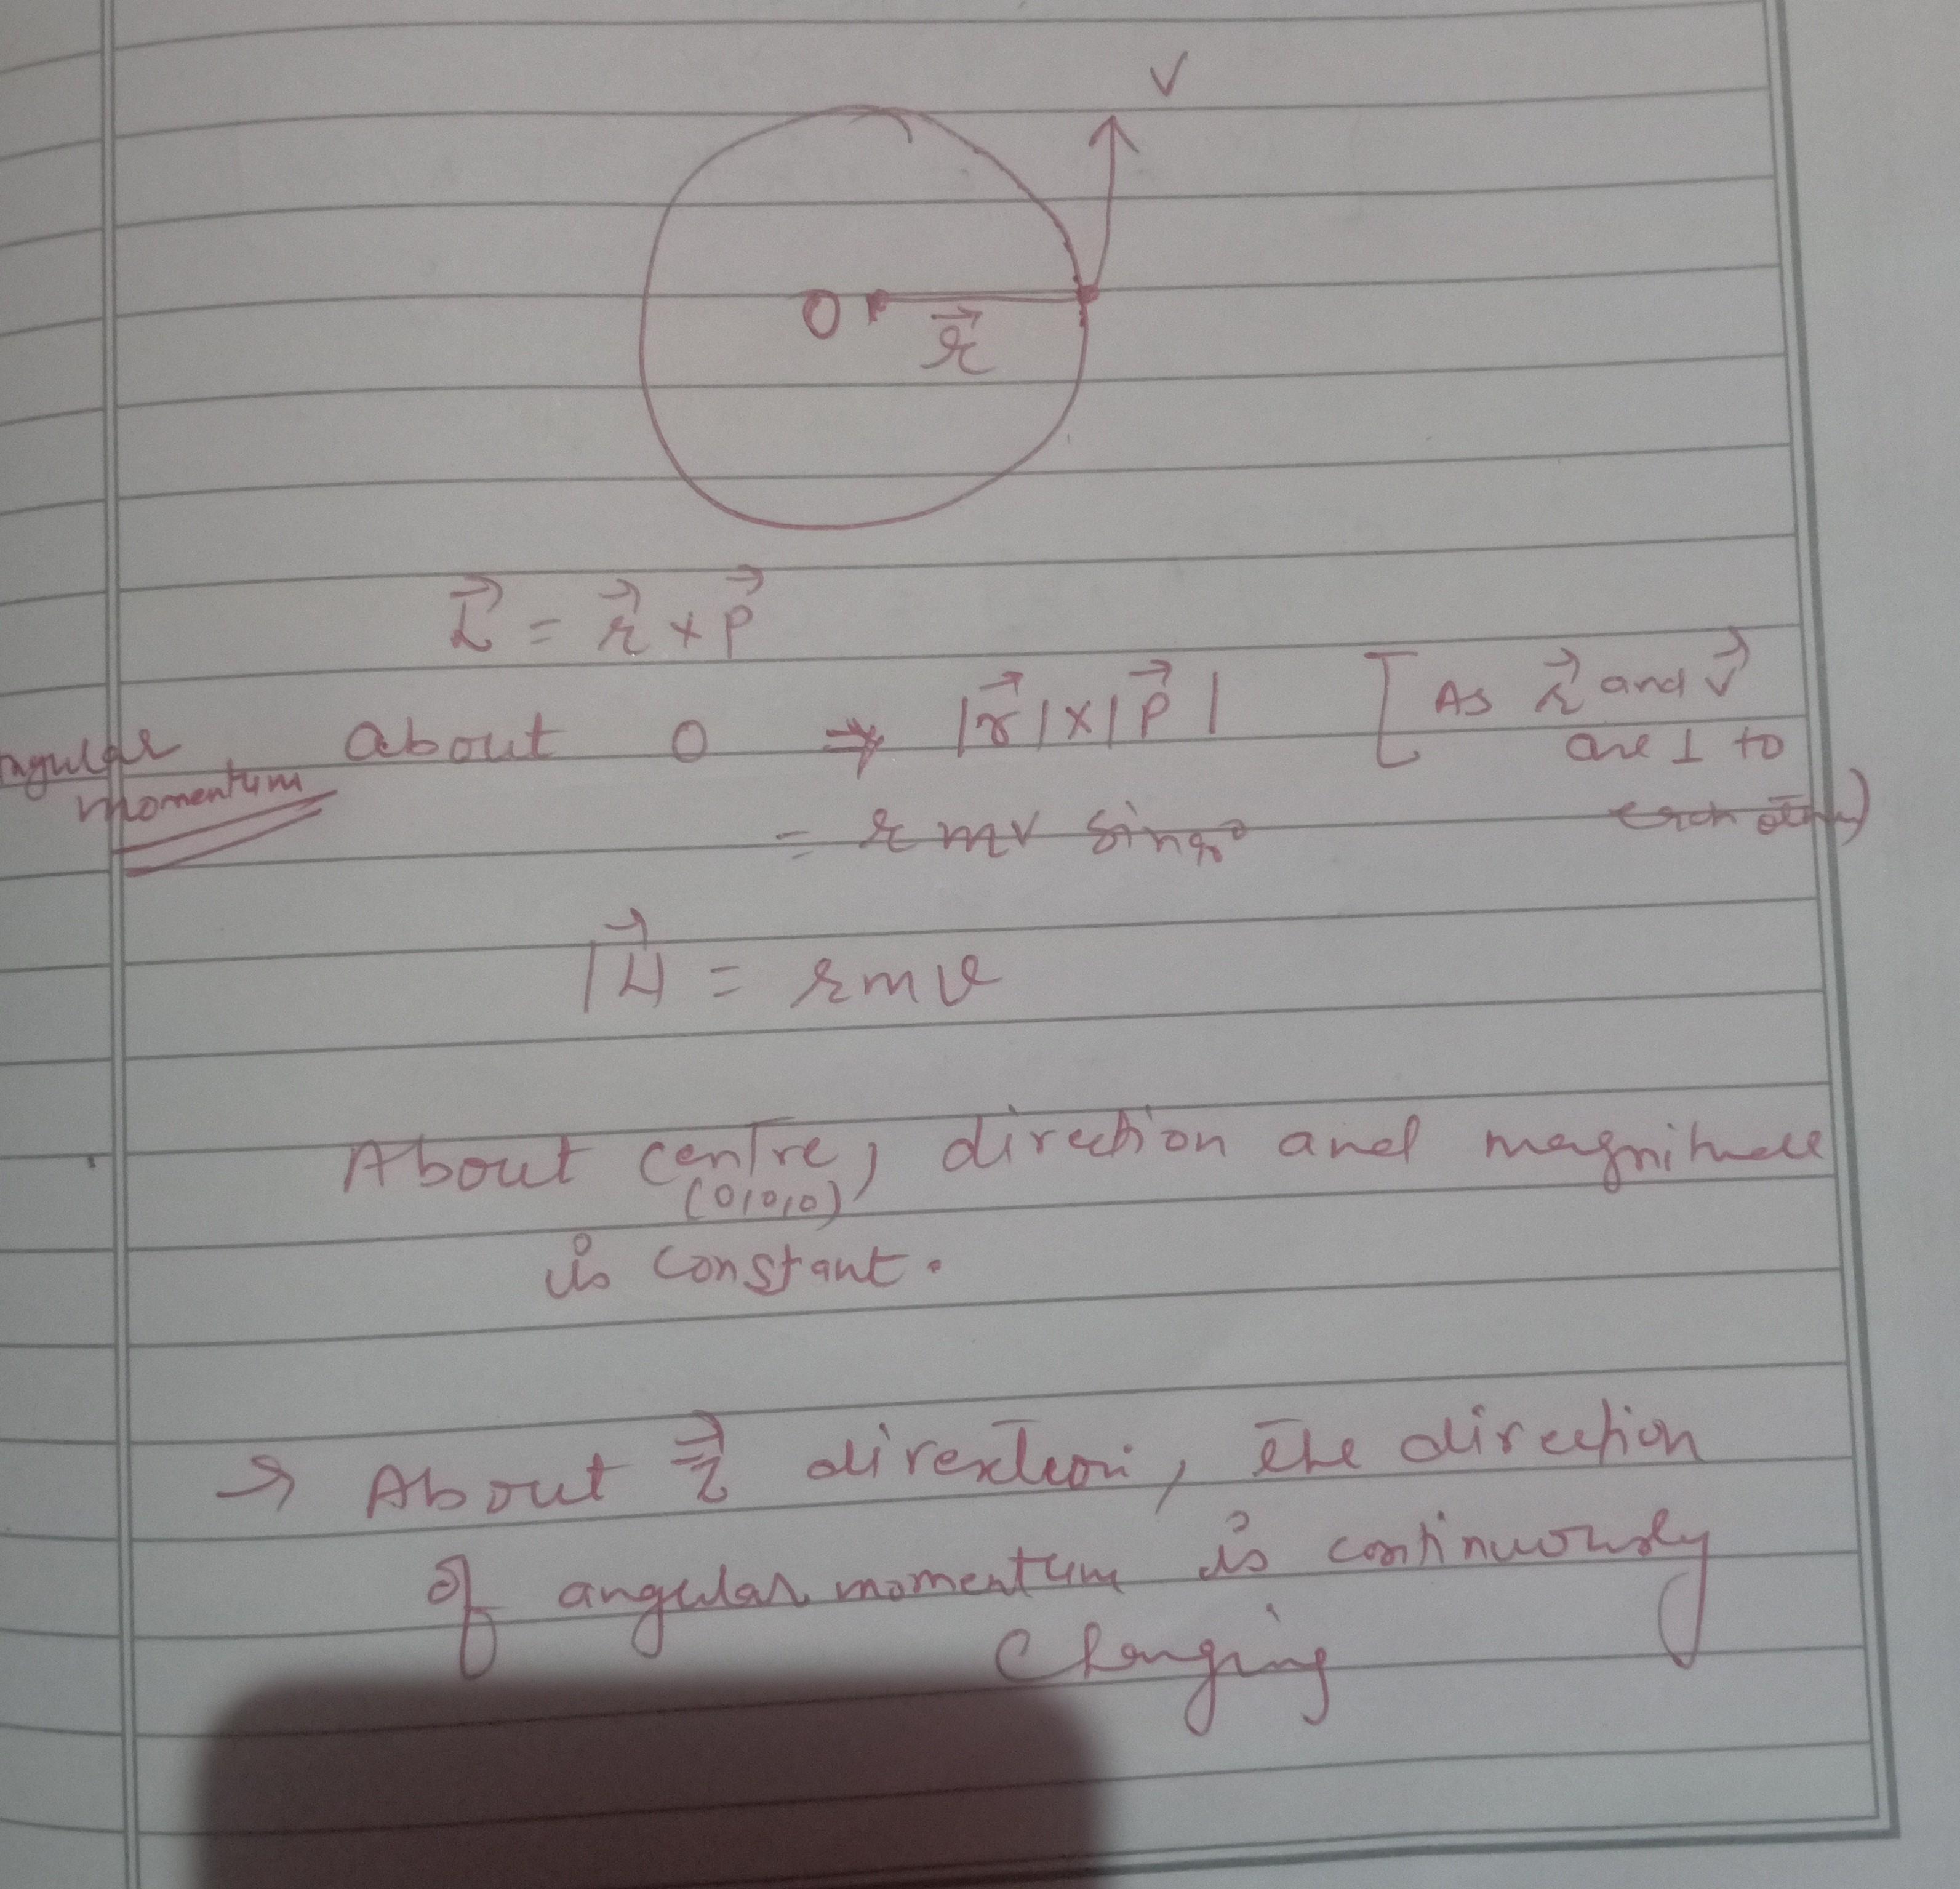 V
O
r⃗
L⃗ = r⃗ × p⃗
angular momentum about O ⇒ |r⃗|×|p⃗| [As r⃗ and v⃗ are ⊥ to each other)
= r mv sin90°
|L⃗| = rmv
About centre, direction and magnitude
(0,0,0)
is constant.
→ About direction, the direction
of angular momentum is continuously
changing